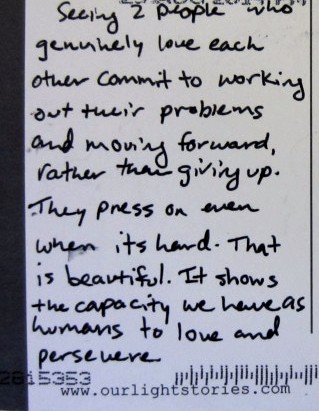 Seeing 2 people who
genuinely love each
other commit to working
out their problems
and moving forward,
rather than giving up.
They press on even
when its hard. That
is beautiful. It shows
the capacity we have as
humans to love and
persevere
2815353
www.ourlightstories.com